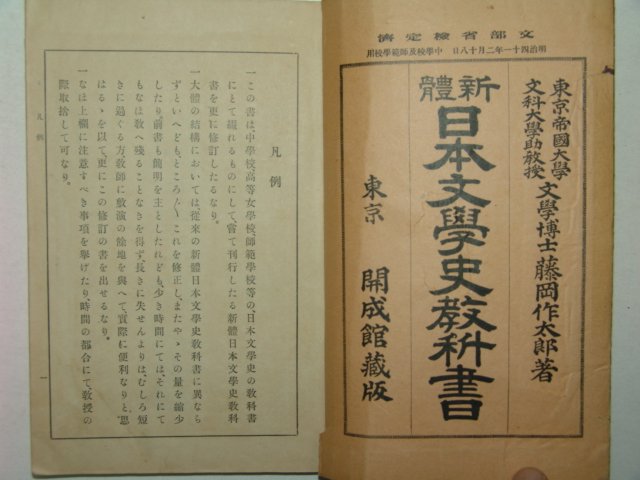 文部省檢定濟
明治四十一年二月十八日 中學校及師範學校用
東京帝國大學
文科大學助敎授 文學博士 藤岡作太郎著
新體 日本文學史敎科書
東京 開成館藏版
凡例
一この書は、中學校、高等女學校、師範學校等の、日本文學史の敎科書
にとて綴れるものにして、嘗て刊行したる新體日本文學史敎科
書を更に修訂したるなり。
一大體の結構においては、從來の新體日本文學史敎科書に異なら
ずといへども、ところ〲これを修正し、またやゝその量を縮少
したり。前書も簡明を主としたれども、少き時間にては、それにて
もなほ敎へ殘ることなきを得ず、長きに失せんよりは、むしろ短
きに過ぐる方敎師に敷演の餘地を與へて、實際に便利なりと思
はるゝを以て、更にこの修訂の書を出せるなり。
一なほ上欄に注意すべき事項を擧げたり、時間の都合にて、敎授の
際取捨して可なり。
凡例
一